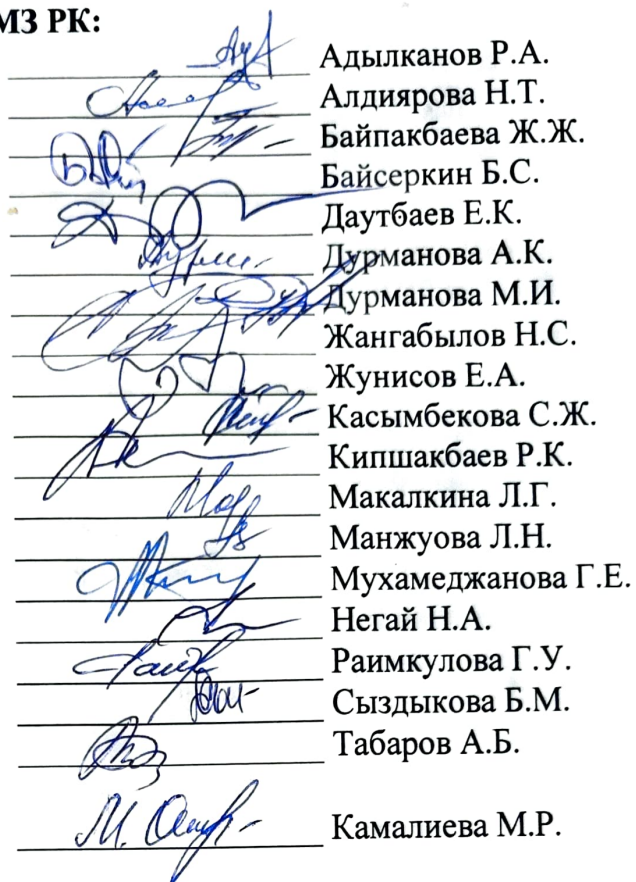 МЗ РК:
Адылканов Р.А.
Алдиярова Н.Т.
Байпакбаева Ж.Ж.
Байсеркин Б.С.
Даутбаев Е.К.
Дурманова А.К.
Дурманова М.И.
Жангабылов Н.С.
Жунисов Е.А.
Касымбекова С.Ж.
Кипшакбаев Р.К.
Макалкина Л.Г.
Манжуова Л.Н.
Мухамеджанова Г.Е.
Негай Н.А.
Раимкулова Г.У.
Сыздыкова Б.М.
Табаров А.Б.
Камалиева М.Р.